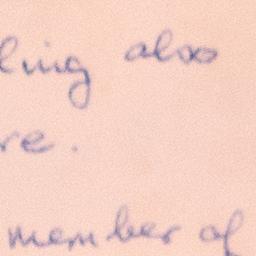 ling also
re.
member of